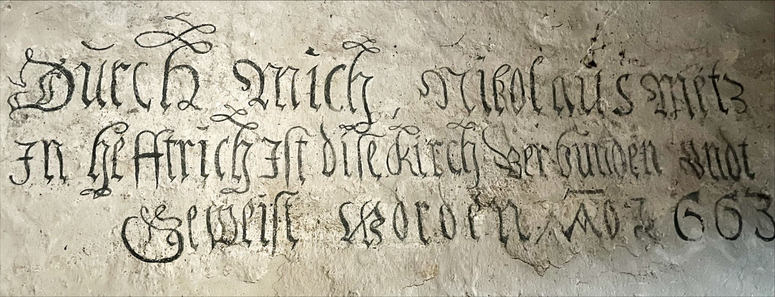 Durch Mich, Nikolaus Metz
In hefftrich Ist dise Kirch Verbunden Vndt
Geweist Worden Ao 1663